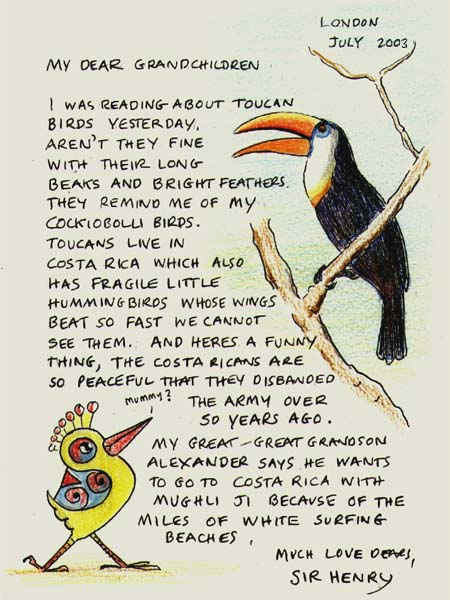 LONDON
JULY 2003
MY DEAR GRANDCHILDREN
I WAS READING ABOUT TOUCAN
BIRDS YESTERDAY,
AREN'T THEY FINE
WITH THEIR LONG
BEAKS AND BRIGHT FEATHERS.
THEY REMIND ME OF MY
COCKIOBOLLI BIRDS.
TOUCANS LIVE IN
COSTA RICA WHICH ALSO
HAS FRAGILE LITTLE
HUMMINGBIRDS WHOSE WINGS
BEAT SO FAST WE CANNOT
SEE THEM. AND HERES A FUNNY
THING, THE COSTA RICANS ARE
SO PEACEFUL THAT THEY DISBANDED
THE ARMY OVER
50 YEARS AGO.
MUMMY?
MY GREAT-GREAT GRANDSON
ALEXANDER SAYS HE WANTS
TO GO TO COSTA RICA WITH
MUGHLI JI BECAUSE OF THE
MILES OF WHITE SURFING
BEACHES,
MUCH LOVE DEARS,
SIR HENRY